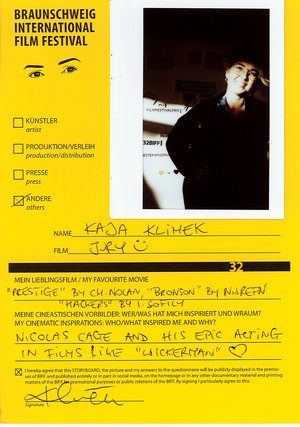 BRAUNSCHWEIG
INTERNATIONAL
FILM FESTIVAL
KÜNSTLER
artist
PRODUKTION/VERLEIH
production/distribution
PRESSE
press
ANDERE
others
32BIFF
NAME KAJA KLIMEK
FILM JURY
32
MEIN LIEBLINGSFILM / MY FAVOURITE MOVIE
"PRESTIGE" BY CH. NOLAN, "BRONSON" BY N.W.REFN
"HACKERS" BY I. SOFTLY
MEINE CINEASTISCHEN VORBILDER: WER/WAS HAT MICH INSPIRIERT UND WARUM?
MY CINEMATIC INSPIRATIONS: WHO/WHAT INSPIRED ME AND WHY?
NICOLAS CAGE AND HIS EPIC ACTING
IN FILMS LIKE "WICKERMAN"
I hereby agree that this STORYBOARD, the picture and my answers to the questionnaire will be publicly displayed in the premis-
es of BIFF and published entirely or in part in social media, on the homepage or in any other documentary material and printing
matters of the BIFF for promotional purposes or public relations of the BIFF. By signing I particularly agree to this.
Signature